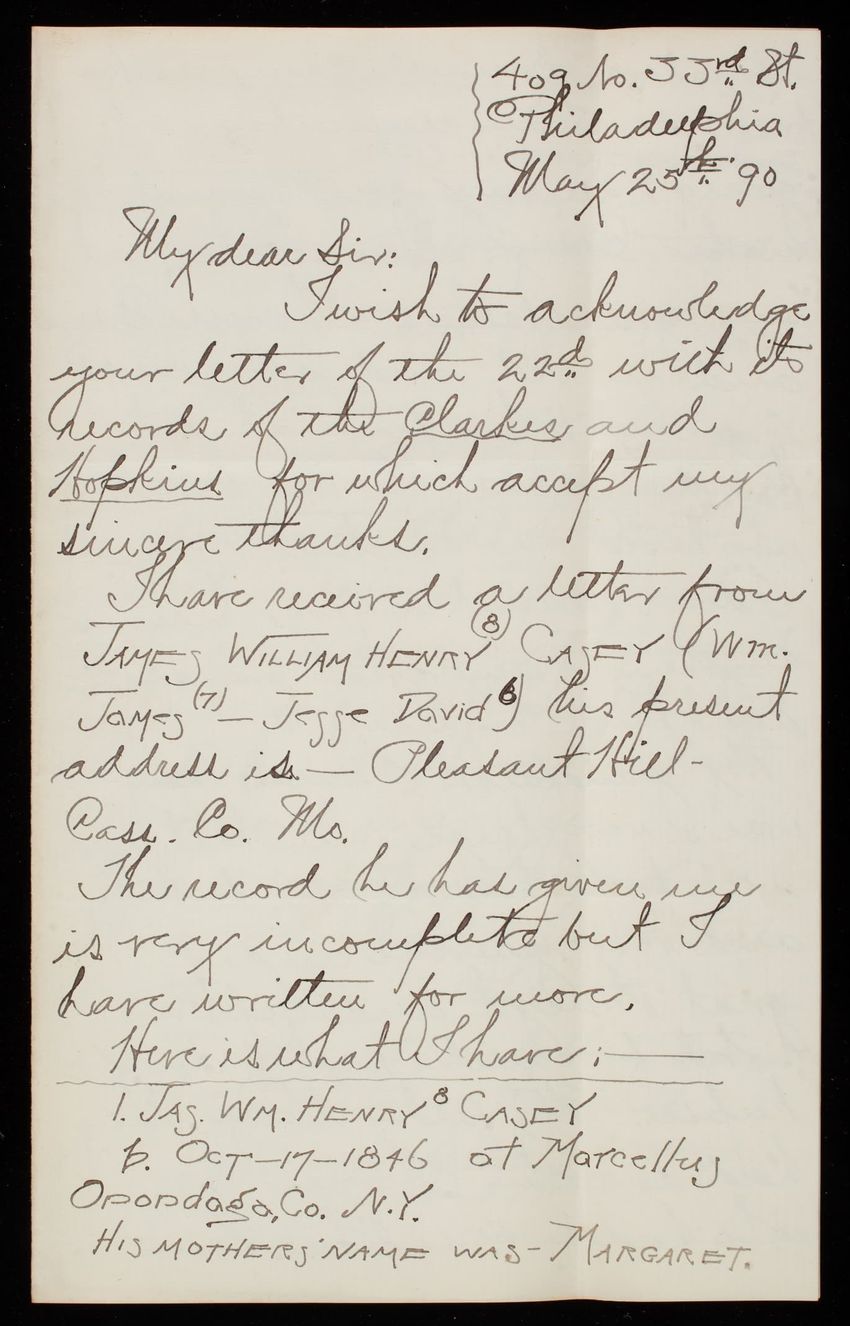 409 No. 33rd St.
Philadelphia
May 25th 90
My dear Sir:
I wish to acknowledge
your letter of the 22d with its
records of the Clarkes and
Hopkins for which accept my
sincere thanks.
I have received a letter from
JAMES WILLIAM HENRY (8) CASEY (Wm.
James (7) — Jesse David 6) his present
address is — Pleasant Hill -
Cass. Co. Mo.
The record he has given me
is very incomplete but I
have written for more.
Here is what I have: —
1. JAS. WM. HENRY 8 CASEY
b. OCT-17-1846 at Marcellus
Onondaga, Co. N.Y.
HIS MOTHERS' NAME WAS - MARGARET.